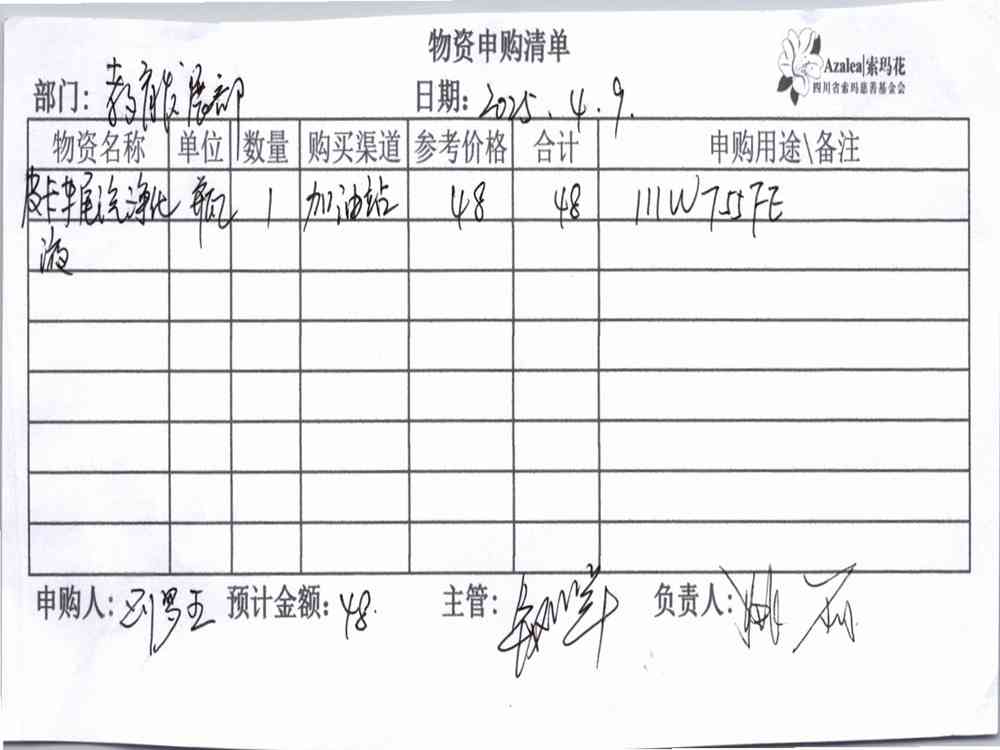 物资申购清单
Azalea|索玛花
四川省索玛慈善基金会
部门：教育发展部 日期：2025.4.9.
物资名称 单位 数量 购买渠道 参考价格 合计 申购用途\备注
皮卡车尾汽净化液 瓶 1 加油站 48 48 111W755FE
申购人：刘罗王 预计金额：48. 主管： 负责人：